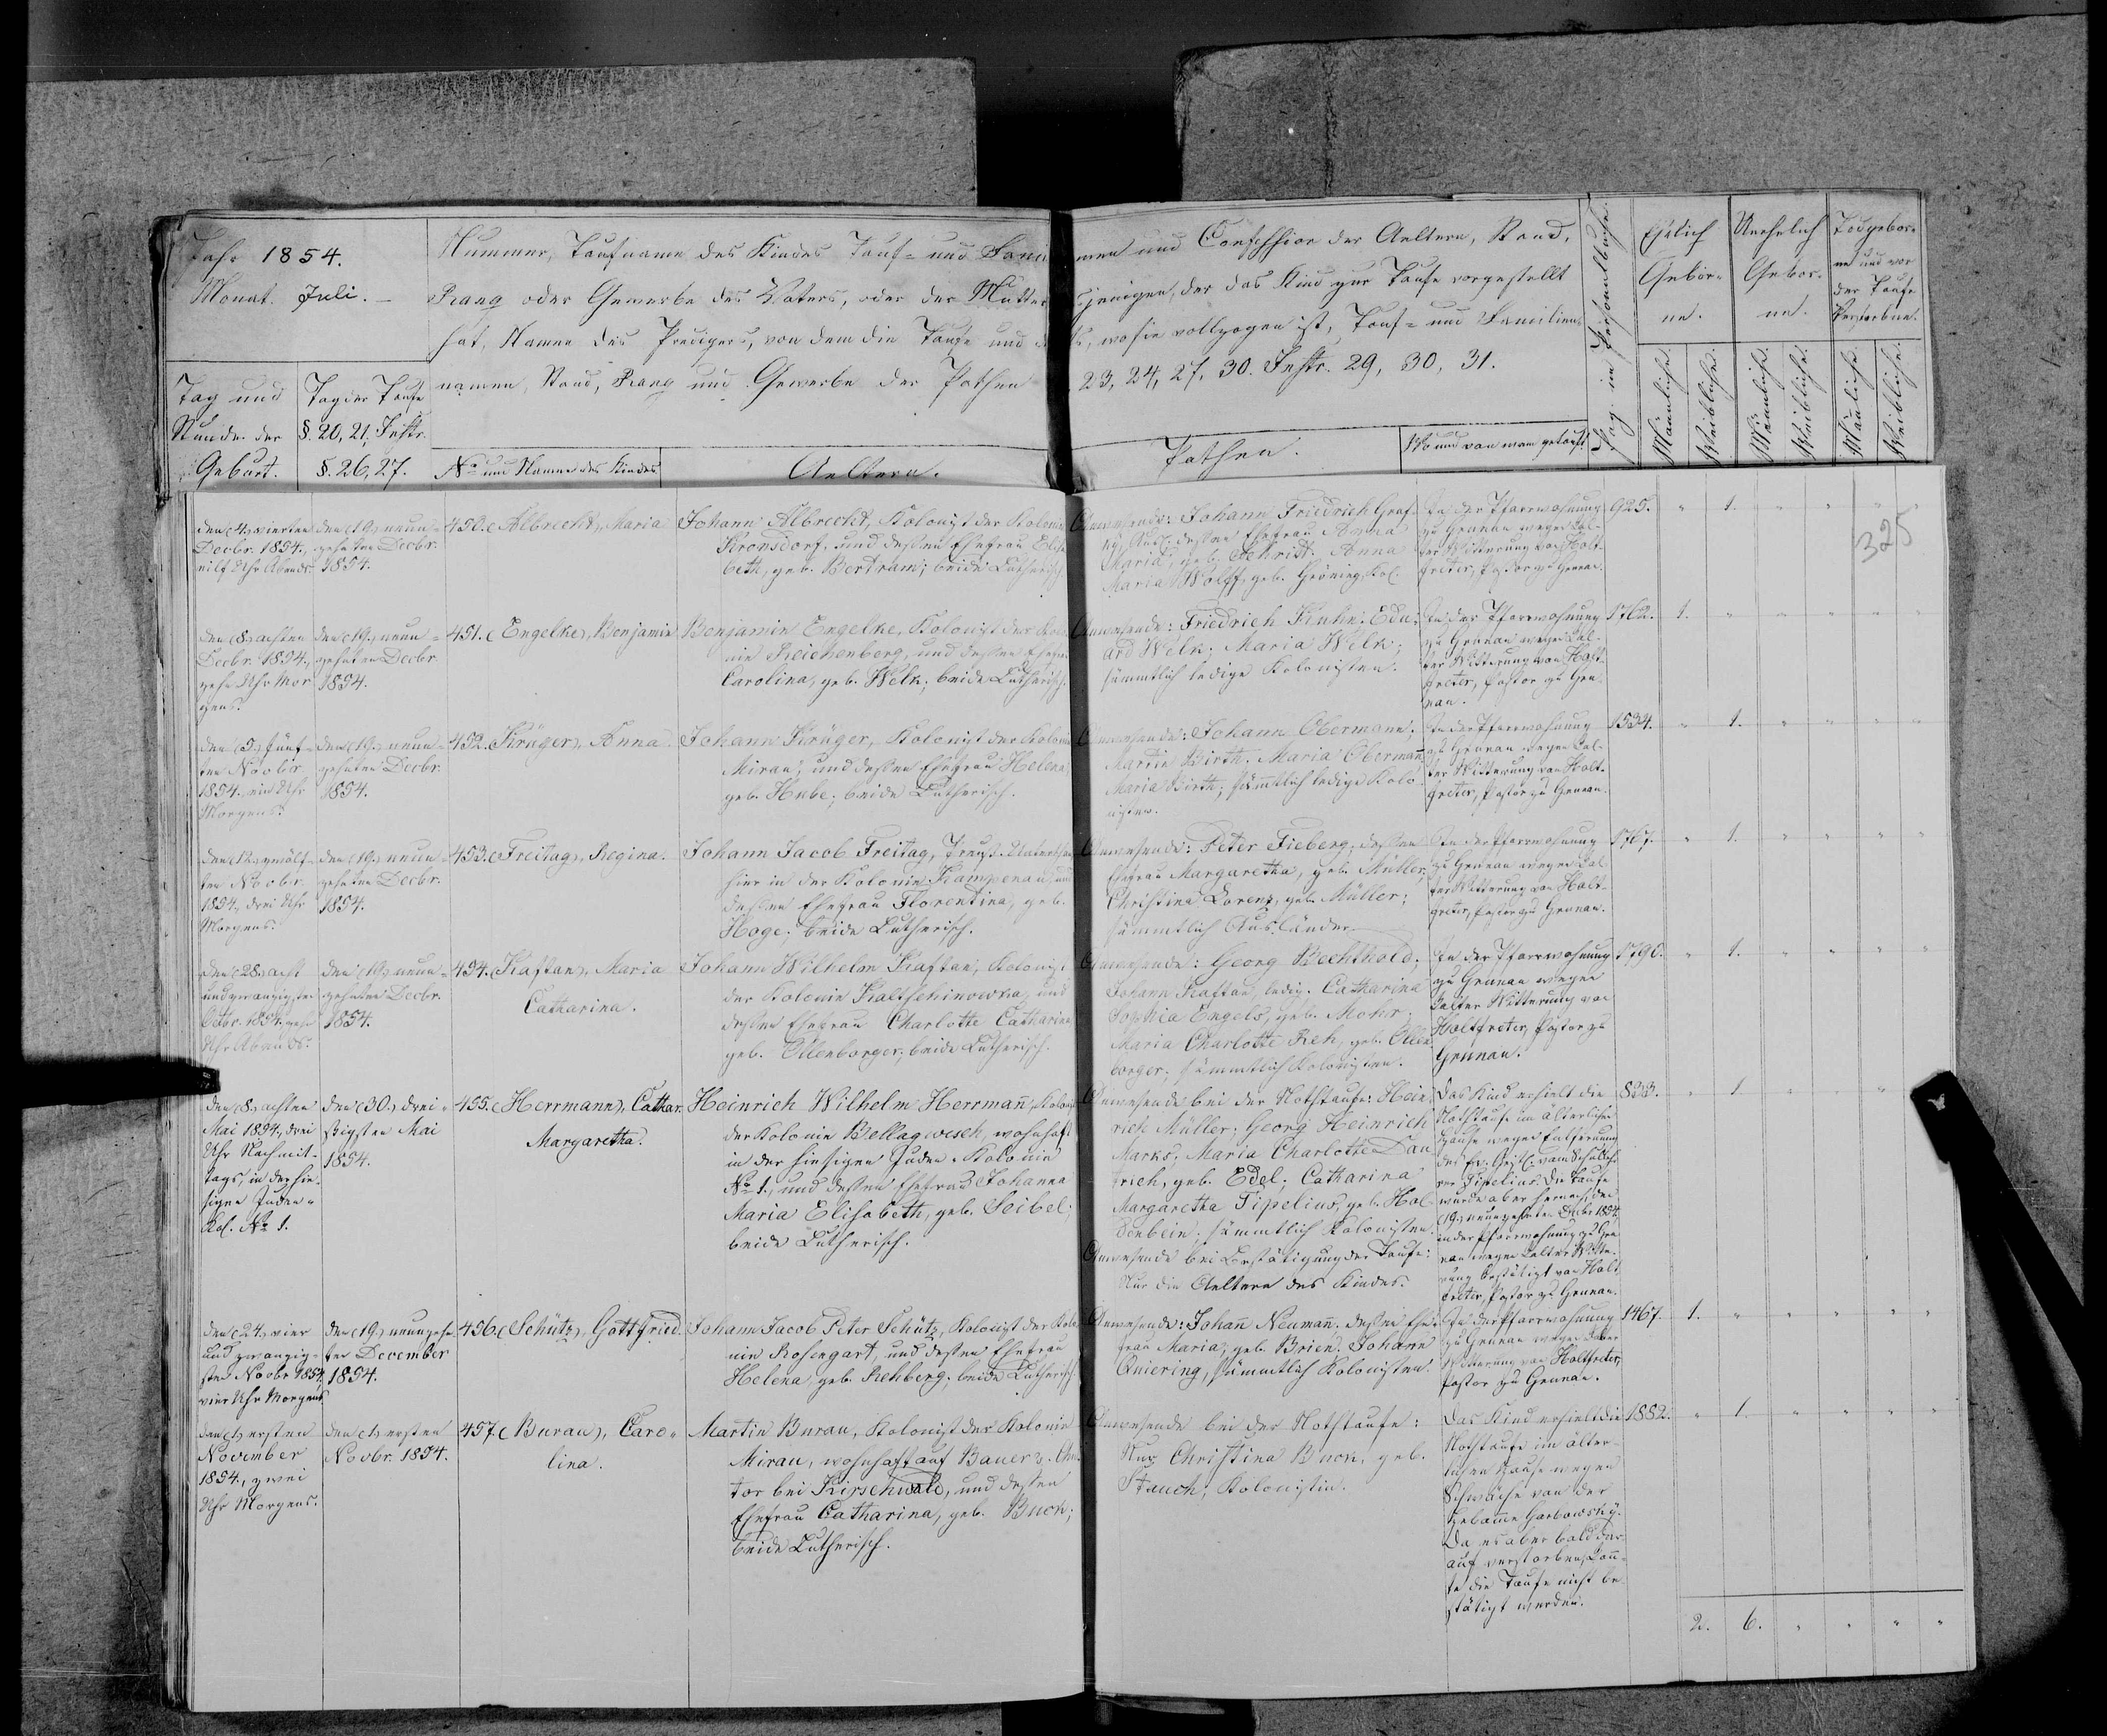 Jahr 1854.
Monat. Juli. –
Nummer, Taufname des Kindes Tauf- und
Rang oder Gewerbe des Vaters, oder der Mutter
hat, Namen des Predigers, von dem die Taufe und
namen, Stand, Rang und Gewerbe der Pathen
Tag und
Stunde der
Geburt.
Tag der Taufe
§. 20, 21, Instr.
§. 26, 27.
No und Name des Kindes
Aeltern.
men und Confession der Aeltern, Stand,
jenigen, der das Kind zur Taufe vorgestellt
wo sie vollzogen ist, Tauf- und Familien-
23, 24, 27, 30. Instr. 29, 30, 31.
Pathen.
Wo und von wem getauft
Pag. im Personalbuche.
Ehelich
Gebor-
ne.
Unehelich
Gebor-
ne.
Todgebor-
ne und vor
der Taufe
Verstorbne.
Männliche.
Weibliche.
Männliche.
Weibliche.
Männliche.
Weibliche.
325
den (4.) vierten
Decbr. 1854.,
eilf Uhr Abends.
den (19.) neun-
zehnten Decbr.
1854.
450. (Albrecht), Maria
Johann Albrecht, Kolonist der Kolonie
Kronsdorf, und dessen Ehefrau Elisa
beth, geb. Bertram; beide Lutherisch.
Anwesende: Johann Friedrich Graf
dessen Ehefrau Anna
Maria, geb. Schritt. Anna
Maria Wolff, geb. Gröning, Kol.
In der Pfarrwohnung
zu Grunau wegen kal-
ter Witterung von Holt-
freter, Pastor zu Grunau.
925. " 1. " " "
den (8.) achten
Decbr. 1854.,
zehn Uhr Mor
gens.
den (19.) neun-
zehnten Decbr.
1854.
451. (Engelke), Benjamin
Benjamin Engelke, Kolonist der Kolo
nie Reichenberg, und dessen Ehefrau
Carolina, geb. Welk; beide Lutherisch.
Anwesende: Friedrich Kuhn; Edu-
ard Welk; Maria Welk;
sämmtlich ledige Kolonisten.
In der Pfarrwohnung
zu Grunau wegen kal-
ter Witterung von Holt-
freter, Pastor zu Gru-
nau.
1762. 1. " " " " "
den (5.) fünf-
ten Novbr.
1854., ein Uhr
Morgens.
den (19.) neun-
zehnten Decbr.
1854.
452. (Krüger), Anna.
Johann Krüger, Kolonist der Kolonie
Mirau, und dessen Ehefrau Helena,
geb. Hube; beide Lutherisch.
Anwesende: Johann Obermann;
Martin Birth. Maria Obermann
Maria Birth; sämmtlich ledige Kolo-
nisten.
In der Pfarrwohnung
zu Grunau wegen kal-
ter Witterung von Holt-
freter, Pastor zu Grunau.
1534. " 1. " " " "
den (12.) zwölf-
ten Novbr.
1854., drei Uhr
Morgens.
den (19.) neun
zehnten Decbr.
1854.
453. (Freitag), Regina.
Johann Jacob Freitag, Preuß. Unterthan
hier in der Kolonie Kampenau, und
dessen Ehefrau Florentina, geb.
Hoge; beide Lutherisch.
Anwesende: Peter Fieberg; dessen
Ehefrau Margaretha, geb. Müller;
Christina Lorenz, geb. Müller;
sämmtlich Ausländer.
In der Pfarrwohnung
zu Grunau wegen kal
ter Witterung von Holt-
freter, Pastor zu Grunau.
1767. " 1. " " " "
den (28.) acht
und zwanzigsten
Octbr. 1854., zehn
Uhr Abends.
den (19.) neun-
zehnten Decbr.
1854.
454. (Kaftan), Maria
Catharina.
Johann Wilhelm Kaftan, Kolonist
der Kolonie Kaltschinowka, und
dessen Ehefrau Charlotte Catharina
geb. Ollenborger; beide Lutherisch.
Anwesende: Georg Bechthold;
Johann Kaftan, ledig. Catharina
Sophia Engels, geb. Mohr;
Maria Charlotte Reh, geb. Ollen
borger; sämmtlich Kolonisten.
In der Pfarrwohnung
zu Grunau wegen
kalter Witterung von
Holtfreter, Pastor zu
Grunau.
1790. " 1. " " " "
den (8.) achten
Mai 1854., drei
Uhr Nachmit-
tags, in der hie-
sigen Juden-
Kol. No 1.
den (30.) drei-
ßigsten Mai
1854.
455. (Herrmann), Cathar.
Margaretha.
Heinrich Wilhelm Herrmann, Kolonist
der Kolonie Bellagwesch, wohnhaft
in der hiesigen Juden-Kolonie
No 1., und dessen Ehefrau Johanna
Maria Elisabeth, geb. Seibel;
beide Lutherisch.
Anwesende bei der Nothtaufe: Hein
rich Müller; Georg Heinrich
Marks, Maria Charlotte Dau
frich, geb. Edel; Catharina
Margaretha Tipelius, geb. Hol
Anwesende bei Bestätigung der Taufe:
Nur die Aeltern des Kindes.
Das Kind erhielt die
Nothtaufe im älterlichen
Hause wegen Entfernung
des Geistl. vom Schulleh
rer Tipelius. Die Taufe
wurde aber hernach, den
(19.) neunzehnten Decbr 1854
in der Pfarrwohnung zu Gru
nau wegen kalter Witte-
rung bestätigt von Holt
freter, Pastor zu Grunau.
833. " 1. " " "
den (24.) vier
und zwanzig-
sten Novbr 1854,
vier Uhr Morgens
den (19.) neunzehn
ten December
1854.
456. (Schütz), Gottfried.
Johann Jacob Peter Schütz, Kolonist der Kolo
nie Rosengart, und dessen Ehefrau
Helena, geb. Rehberg; beide Lutherisch.
Anwesende: Johann Neumann. dessen Ehe-
frau Maria, geb. Brien. Johann
Quiering, sämmtlich Kolonisten.
In der Pfarrwohnung
zu Grunau wegen kalter
Witterung von Holtfreter,
Pastor zu Grunau.
1467. 1. " " " " "
den (1.) ersten
November
1854., zwei
Uhr Morgens.
den (1.) ersten
Novbr. 1854.
457. (Burau), Caro-
lina.
Martin Burau, Kolonist der Kolonie
Mirau, wohnhaft auf Bauer's Chu
tor bei Kirschwald, und dessen
Ehefrau Catharina, geb. Buck;
beide Lutherisch.
Anwesende bei der Nothtaufe:
Nur Christina Buck, geb.
Stauch, Kolonistin.
Das Kind erhielt die
Nothtaufe im älter-
lichen Hause wegen
Schwäche von der
Hebamme Garbowsky.
Da es aber bald dar-
auf verstorben, konn-
te die Taufe nicht be-
stätigt werden.
1882. " 1. " " " "
2. 6. " " " "